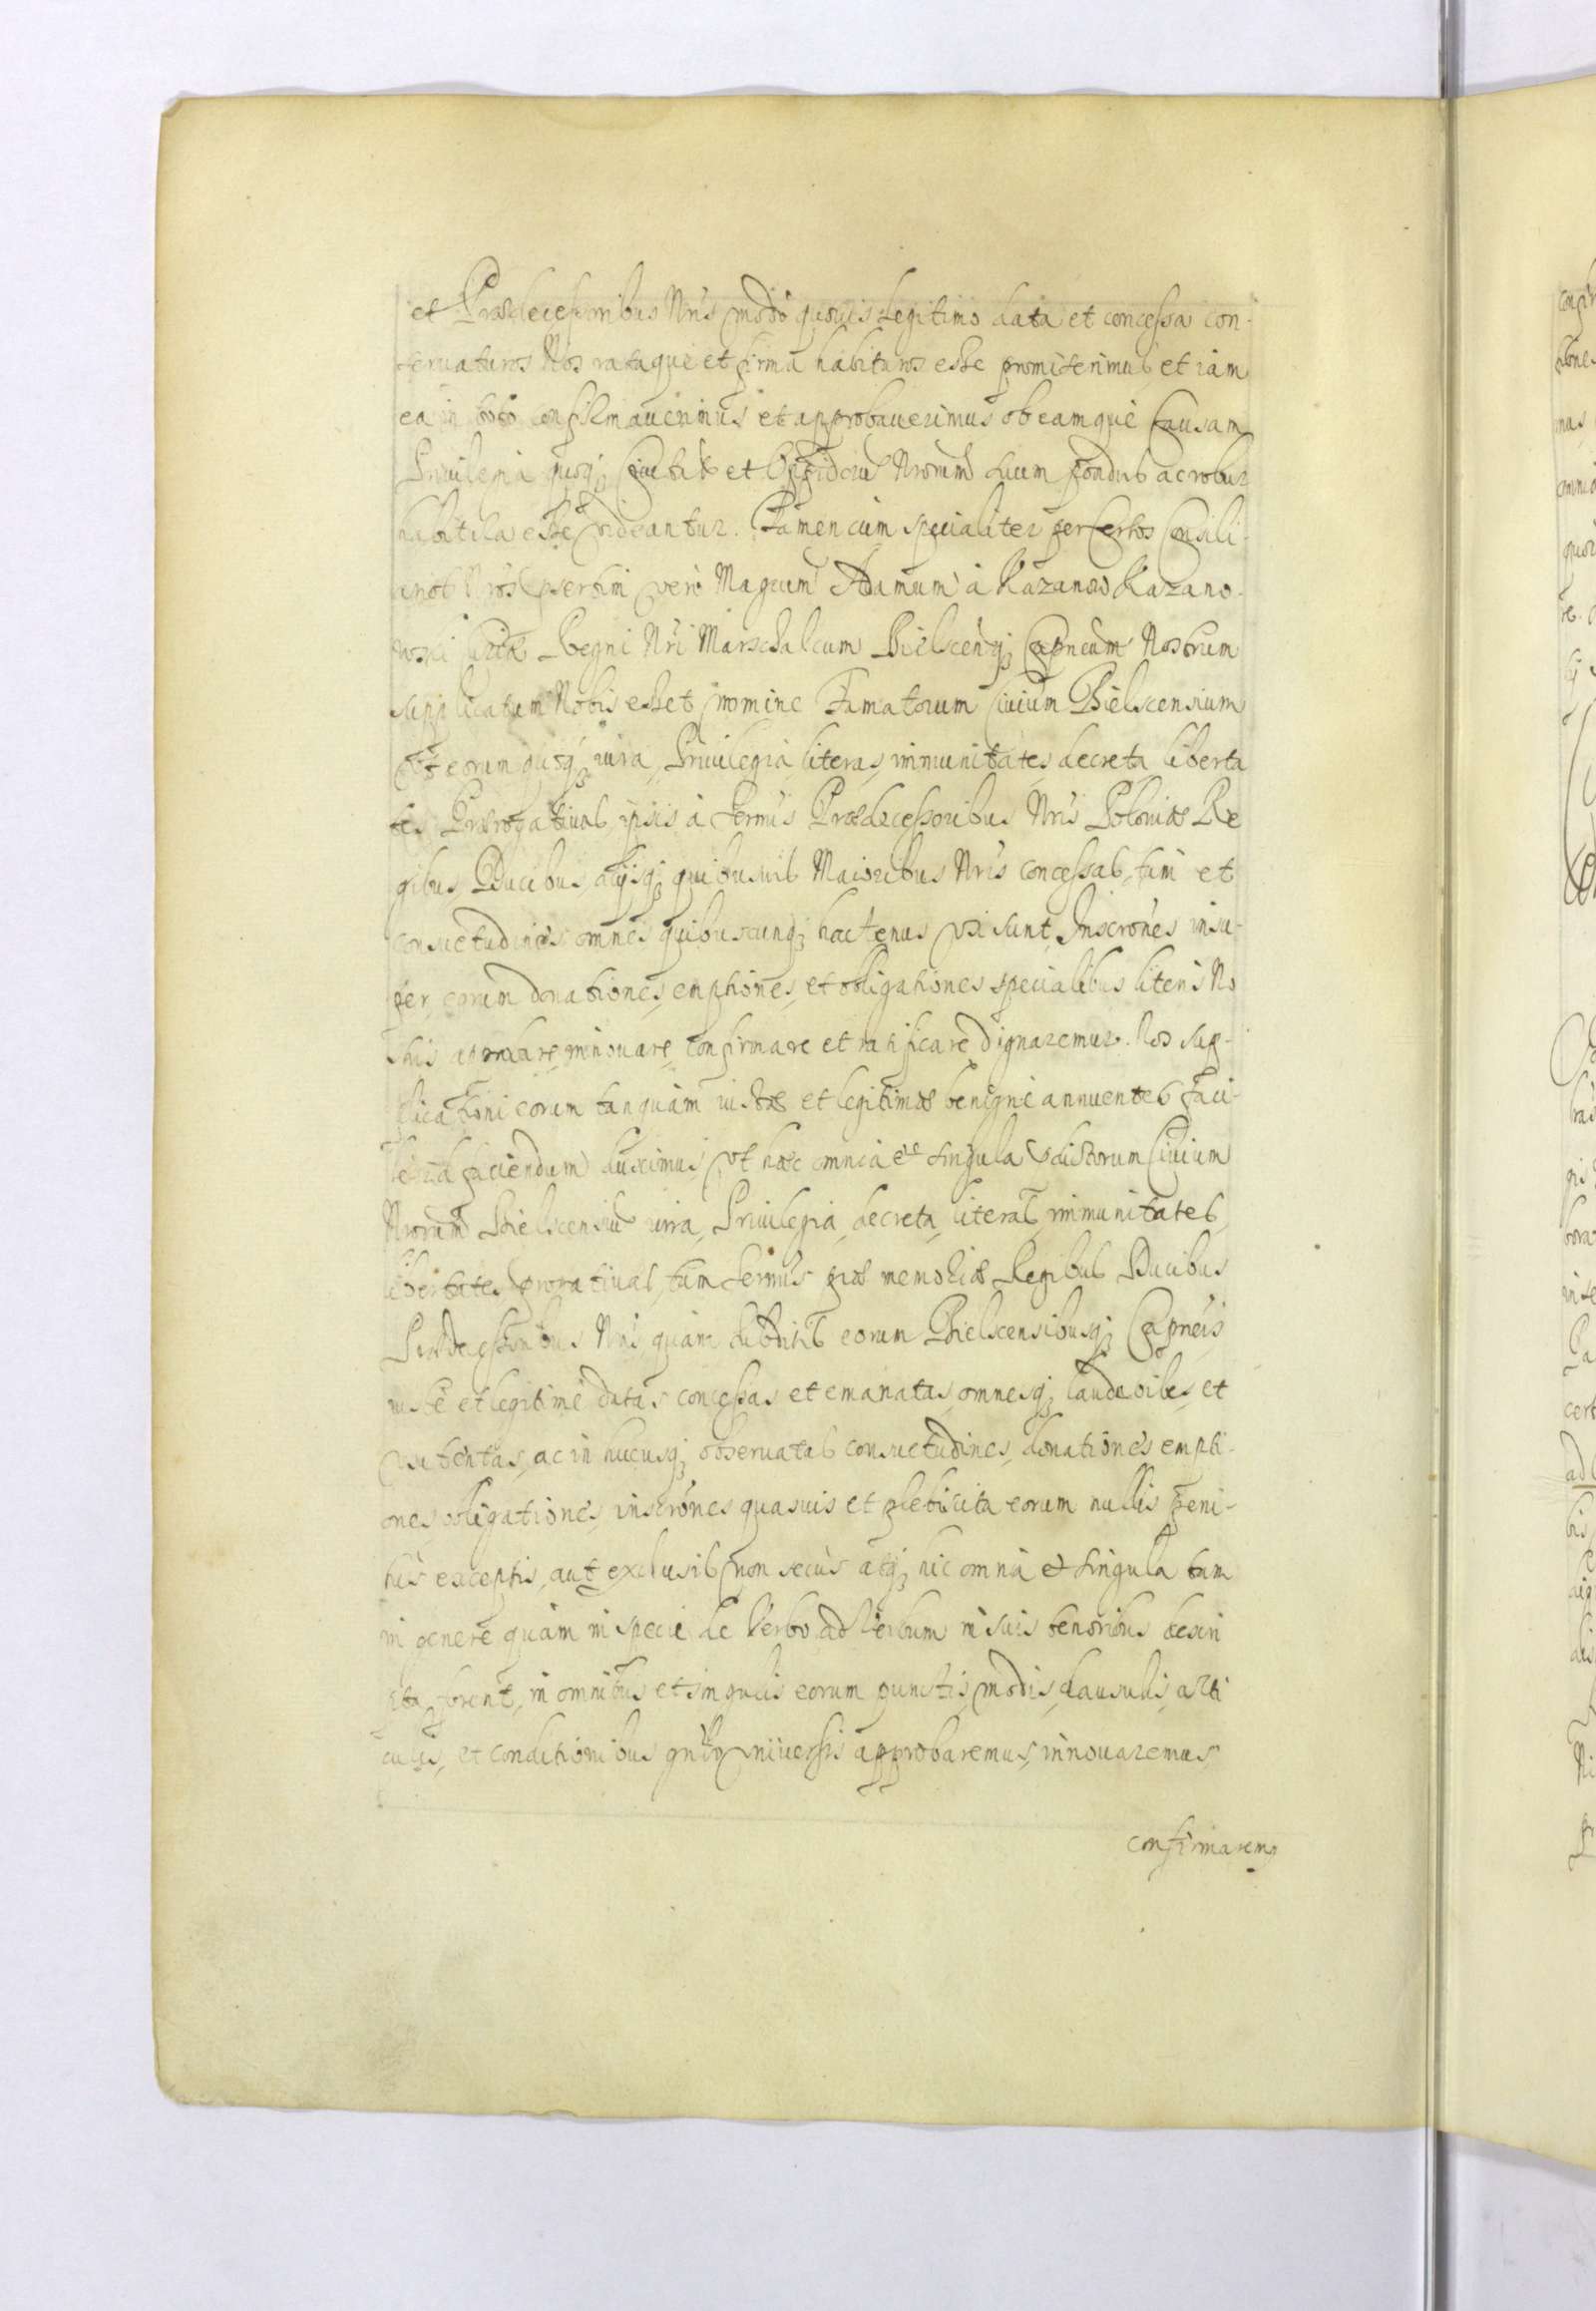 et Prædecessoribus Nris modo quouis legitimo data et concessa con-
seruaturos Nos rataque et firma habituros esse promiserimus et iam
ea in toto confirmauerimus et approbauerimus ob eamque causam
Priuilegia quoq; Ciuitatū et Oppidorū Nrorum suum pondus ac robur
habitura esse videantur. Tamen cum specialiter per Certos Consili-
arios Nros psertim vero Magcum Adamum à Kazanow Kazano-
wski Curiæ Regni Nri Marschalcum Bielscenq; Capneum Nostrum
supplicatum Nobis esset nomine Famatorum Ciuium Bielscensium
vt eorum quoq; iura, Priuilegia, literas, immunitates, decreta, liberta
tes, Prærogatiuas, ipsis à sermis Prædecessoribus Nris Poloniæ Re
gibus, Ducibus, alijsq; quibusuis Maioribus Nris concessas, tum et
consuetudines omnes quibuscunq; hactenus vsi sunt, Inscrones insu-
per, eorum donationes, emptiones, et obligationes specialibus literis No
stris approbare, innouare, confirmare et ratificare dignaremur. Nos sup-
plicationi eorum tanquam iustæ et legitimæ benigne annuentes faci-
le id faciendum duximus, vt hæc omnia et singula pdictorum Ciuium
Nrorum Bielscensiū iura, Priuilegia, decreta, literas, immunitates,
libertates, prorgatiuas, tam sermis piæ memoriæ Regibus Ducibus
Prædecessoribus Nris quam subditis eorum Bielscensibusq; Capneis
iuste et legitime datas concessas et emanatas, omnesq; laudabiles, et
vsu tentas, ac in hucusq; obseruatas consuetudines, donationes empti-
ones, obligationes, inscrones quasuis et plebiscita eorum nullis peni-
tus exceptis, aut exclusis non secus atq; hic omnia et singula tam
in genere quam in specie de Verbo ad Verbum in suis tenoribus descri
pta forent, in omnibus et singulis eorum punctis, modis, clausulis, arti
culis, et conditionibus gnlr vniuersis approbaremus, innouaremus,
confirmarem9